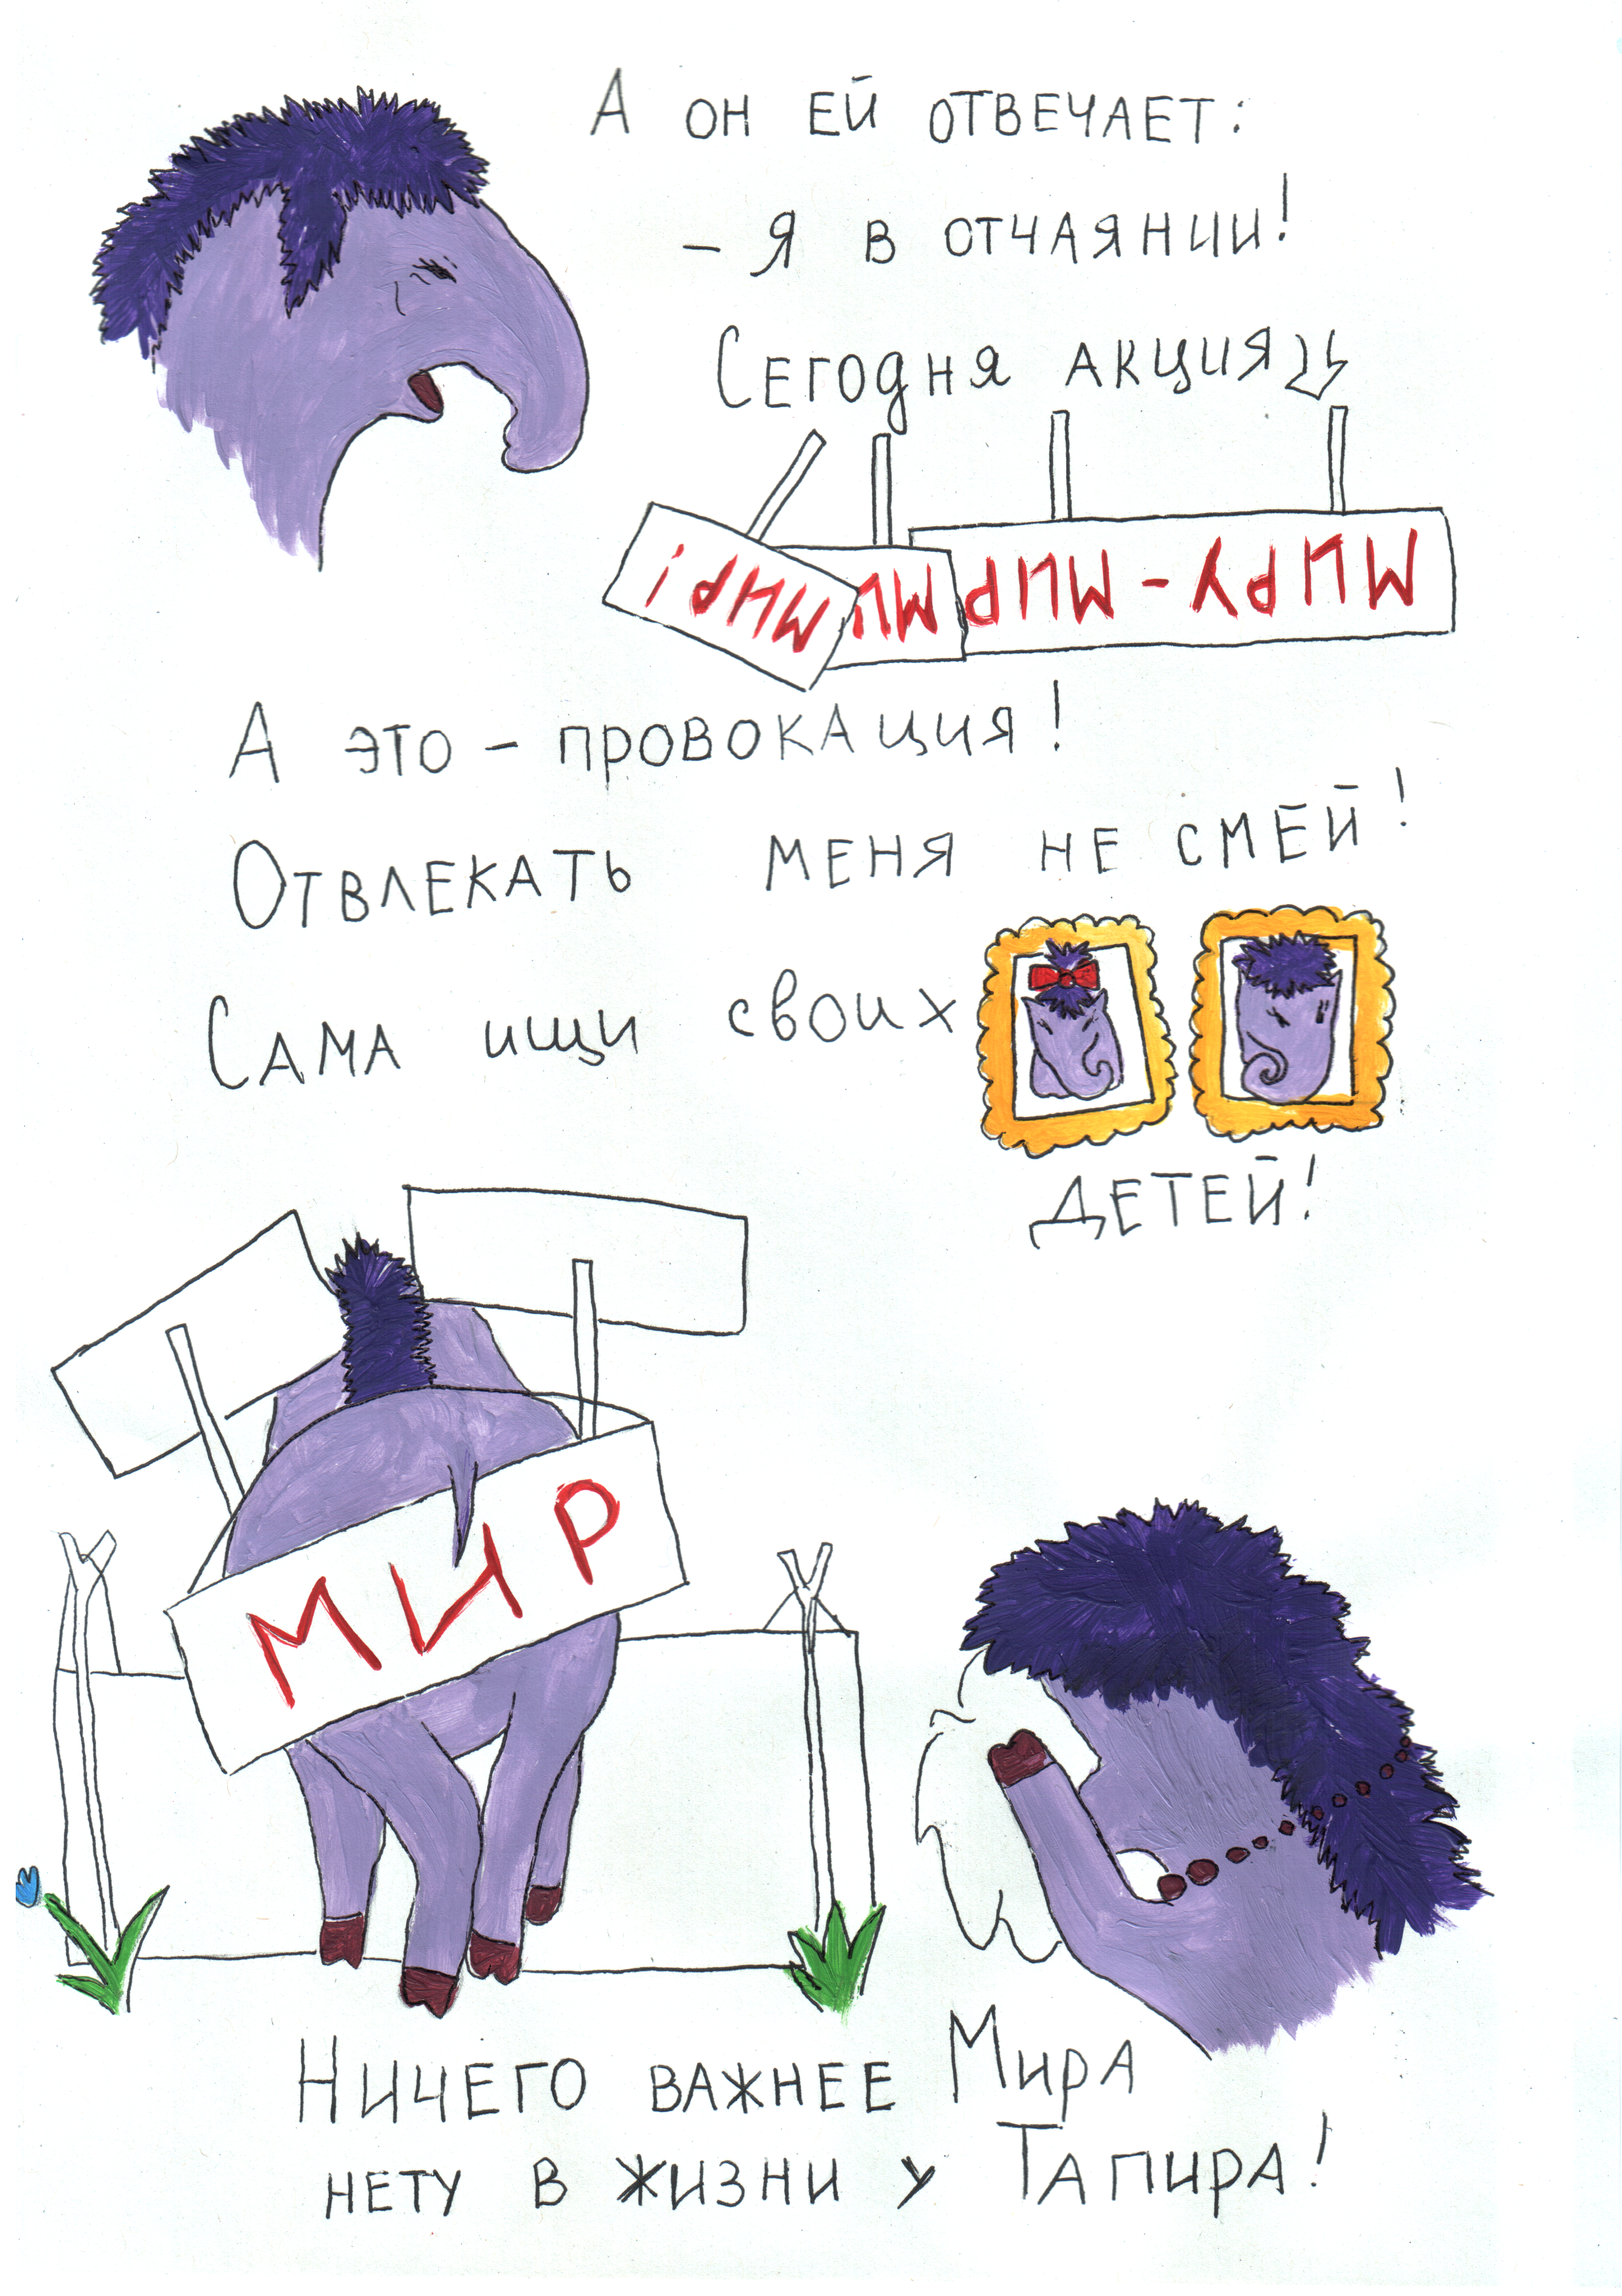 А ОН ЕЙ ОТВЕЧАЕТ:
– Я В ОТЧАЯНИИ!
СЕГОДНЯ АКЦИЯ
МИРУ-МИР
МИ
МИР!
А ЭТО – ПРОВОКАЦИЯ!
ОТВЛЕКАТЬ МЕНЯ НЕ СМЕЙ!
САМА ИЩИ СВОИХ
ДЕТЕЙ!
МИР
НИЧЕГО ВАЖНЕЕ МИРА
НЕТУ В ЖИЗНИ У ТАПИРА!